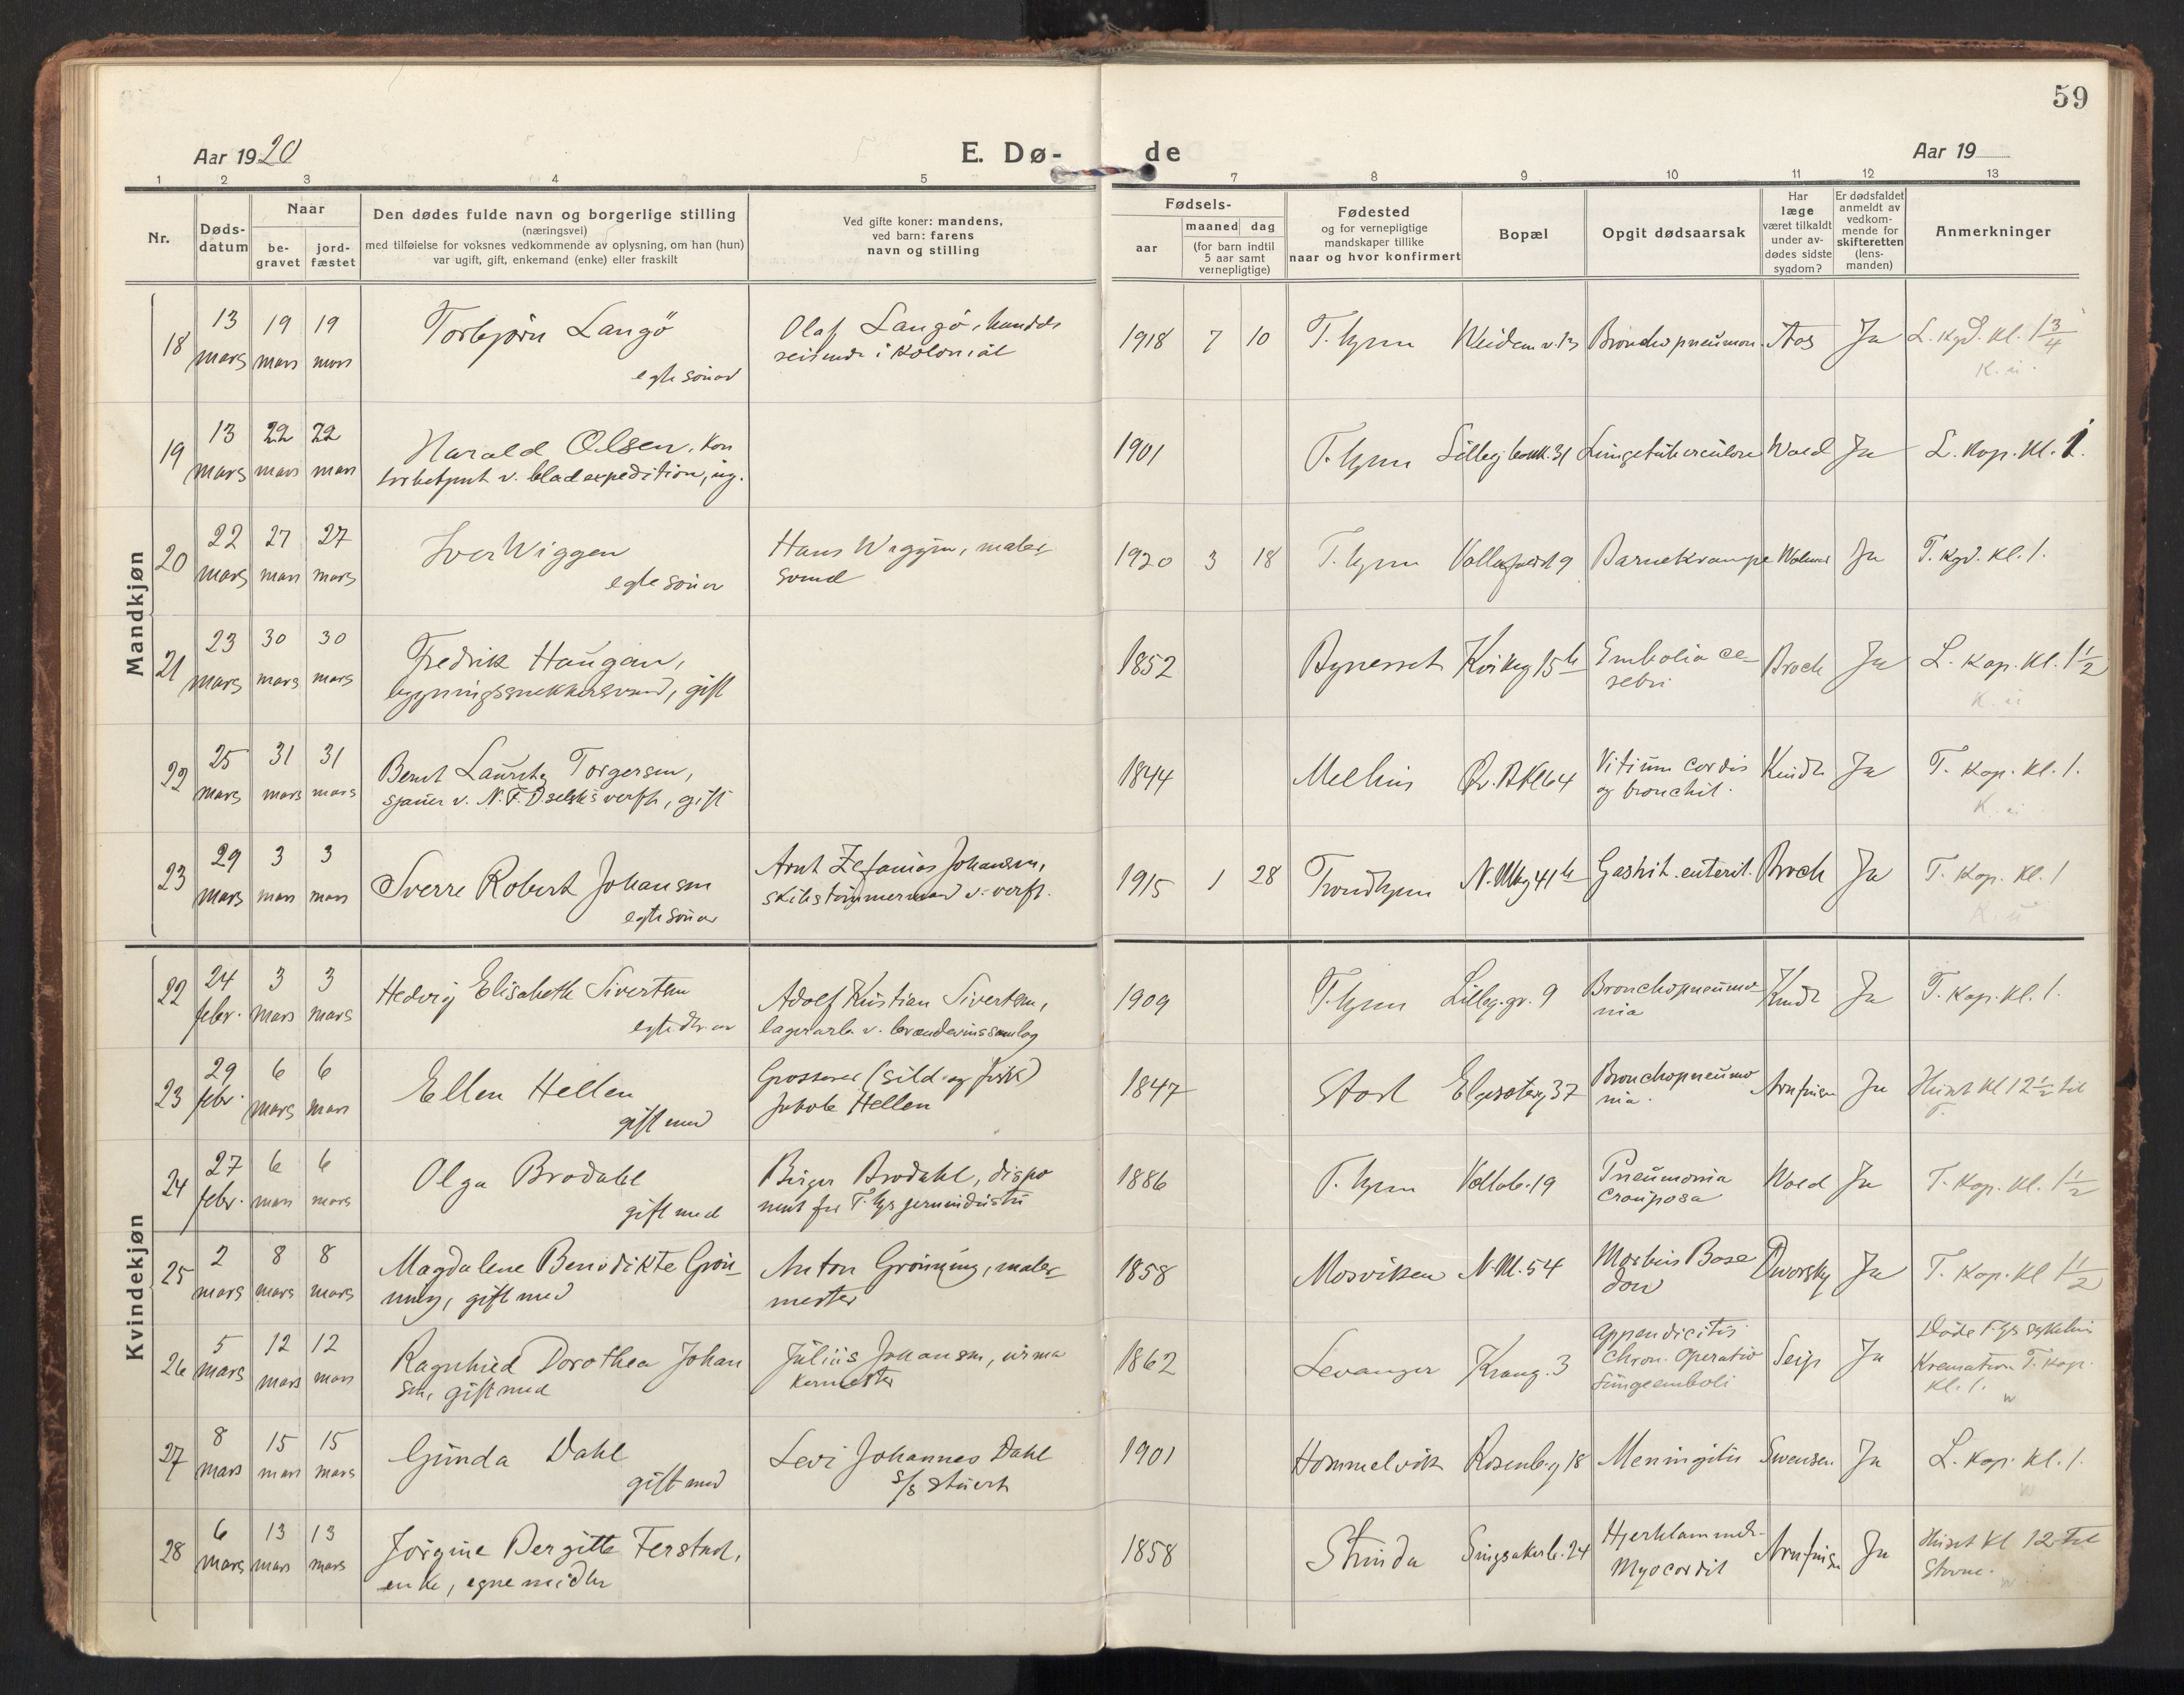 59
Aar 1920
E. Dø-
de
Aar 19
1 2 3 4 5 7 8 9 10 11 12 13
Nr.
Døds-
datum
Naar
be-
gravet
jord-
fæstet
Den dødes fulde navn og borgerlige stilling
(næringsvei)
med tilføielse for voksnes vedkommende av oplysning, om han (hun)
var ugift, gift, enkemand (enke) eller fraskilt
Ved gifte koner: mandens,
ved barn: farens
navn og stilling
Fødsels-
aar
maaned dag
(for barn indtil
5 aar samt
vernepligtige)
Fødested
og for vernepligtige
mandskaper tillike
naar og hvor konfirmert
Bopæl
Opgit dødsaarsak
Har
læge
været tilkaldt
under av-
dødes sidste
sygdom?
Er dødsfaldet
anmeldt av
vedkom-
mende for
skifteretten
(lens-
manden)
Anmerkninger
Mandkjøn
18 13 mars 19 mars 19 mars
Torbjørn Langö
egte sön av
Olaf Langö, handels
reisende i kolonial
1918 7 10 T.hjem Bronchopneumon. Aas Ja L. kgd. kl. 1 3/4
K. ü.
19 13 mars 22 mars 22 mars
Harald Olsen, kon
torbetjent v. bladexpedition, ug.
1901 T.hjem Lungetuberculose Wold Ja L. Kap. Kl. 1.
20 22 mars 27 mars 27 mars
Iver Wiggen
egte sön av
Hans Wiggen, maler
svend
1920 3 18 T.hjem Barnekrampe Ja T. kgd. kl. 1.
21 23 mars 30 mars 30 mars
Fredrik Haugan,
bygningssnekkersvend, gift
1852 Bynesset Embolia ce-
rebri Broch Ja L. Kap. Kl. 1 1/2
K. ü
22 25 mars 31 mars 31 mars
Bernt Lauritz Torgersen,
sjauer v. N. F. Dselsk's verft, gift
1844 Melhus Vitium cordis
og bronchit. Ja T. Kap. Kl. 1.
K. ü
23 29 mars 3 mars 3 mars
Sverre Robert Johansen
egte sön av
Arnt Zefanias Johansen,
skibstömmermand v. verft.
1915 1 28 Trondhjem Gastrit. enterit. Broch Ja T. Kap. Kl. 1
K. ü
Kvindekjøn
22 24 febr. 3 mars 3 mars
Hedvig Elisabeth Sivertsen
egte dtr. av
Adolf Kristian Sivertsen,
lagerarb. v. brændevinssamlag
1909 T.hjem Lilleg. gr. 9 Bronchopneumo
nia Ja T. Kap. Kl. 1.
23 29 febr. 6 mars 6 mars
Ellen Hellen
gift med
Grosserer (sild og fisk)
Jakob Hellen
1847 Bronchopneumo
nia. Arnfinsen Ja Huset kl 12 1/2 til
T.
24 27 febr. 6 mars 6 mars
Olga Brodahl
gift med
Birger Brodahl, dispo
nent for T.hjs jernindustri
1886 T.hjem Voldab. 19 Pneumonia
crouposa Wold Ja T. Kap. Kl. 1 1/2
25 2 mars 8 mars 8 mars
Magdalene Benedikte Grön
ning, gift med
Anton Grönning, maler
mester
1858 Mosviken N. Al. 54 Morbus Base
dow Dworsky Ja T. Kap. Kl 1 1/2
26 5 mars 12 mars 12 mars
Ragnhild Dorothea Johan
sen, gift med
Julius Johansen, urma
kermester
1862 Levanger Krang. 3 Appendicitis
chron. Operatio
Lungeemboli Seip Ja Döde T.hjs sykehus
Kremation T. Kap.
Kl. 1.
w
27 8 mars 15 mars 15 mars
Gunda Dahl
gift med
Levi Johannes Dahl
s/s stuert
1901 Hommelvik Rosenb.g 18 Meningitis Svensen Ja L. Kap. Kl. 1.
w
28 6 mars 13 mars 13 mars
Jörgine Bergitte Ferstad,
enke, egne midler
1858 Strinda Singsakerb. 24 Hjerklammer-
Myocardit Arnfinsen Ja Huset kl 12 til
Stavne.
w